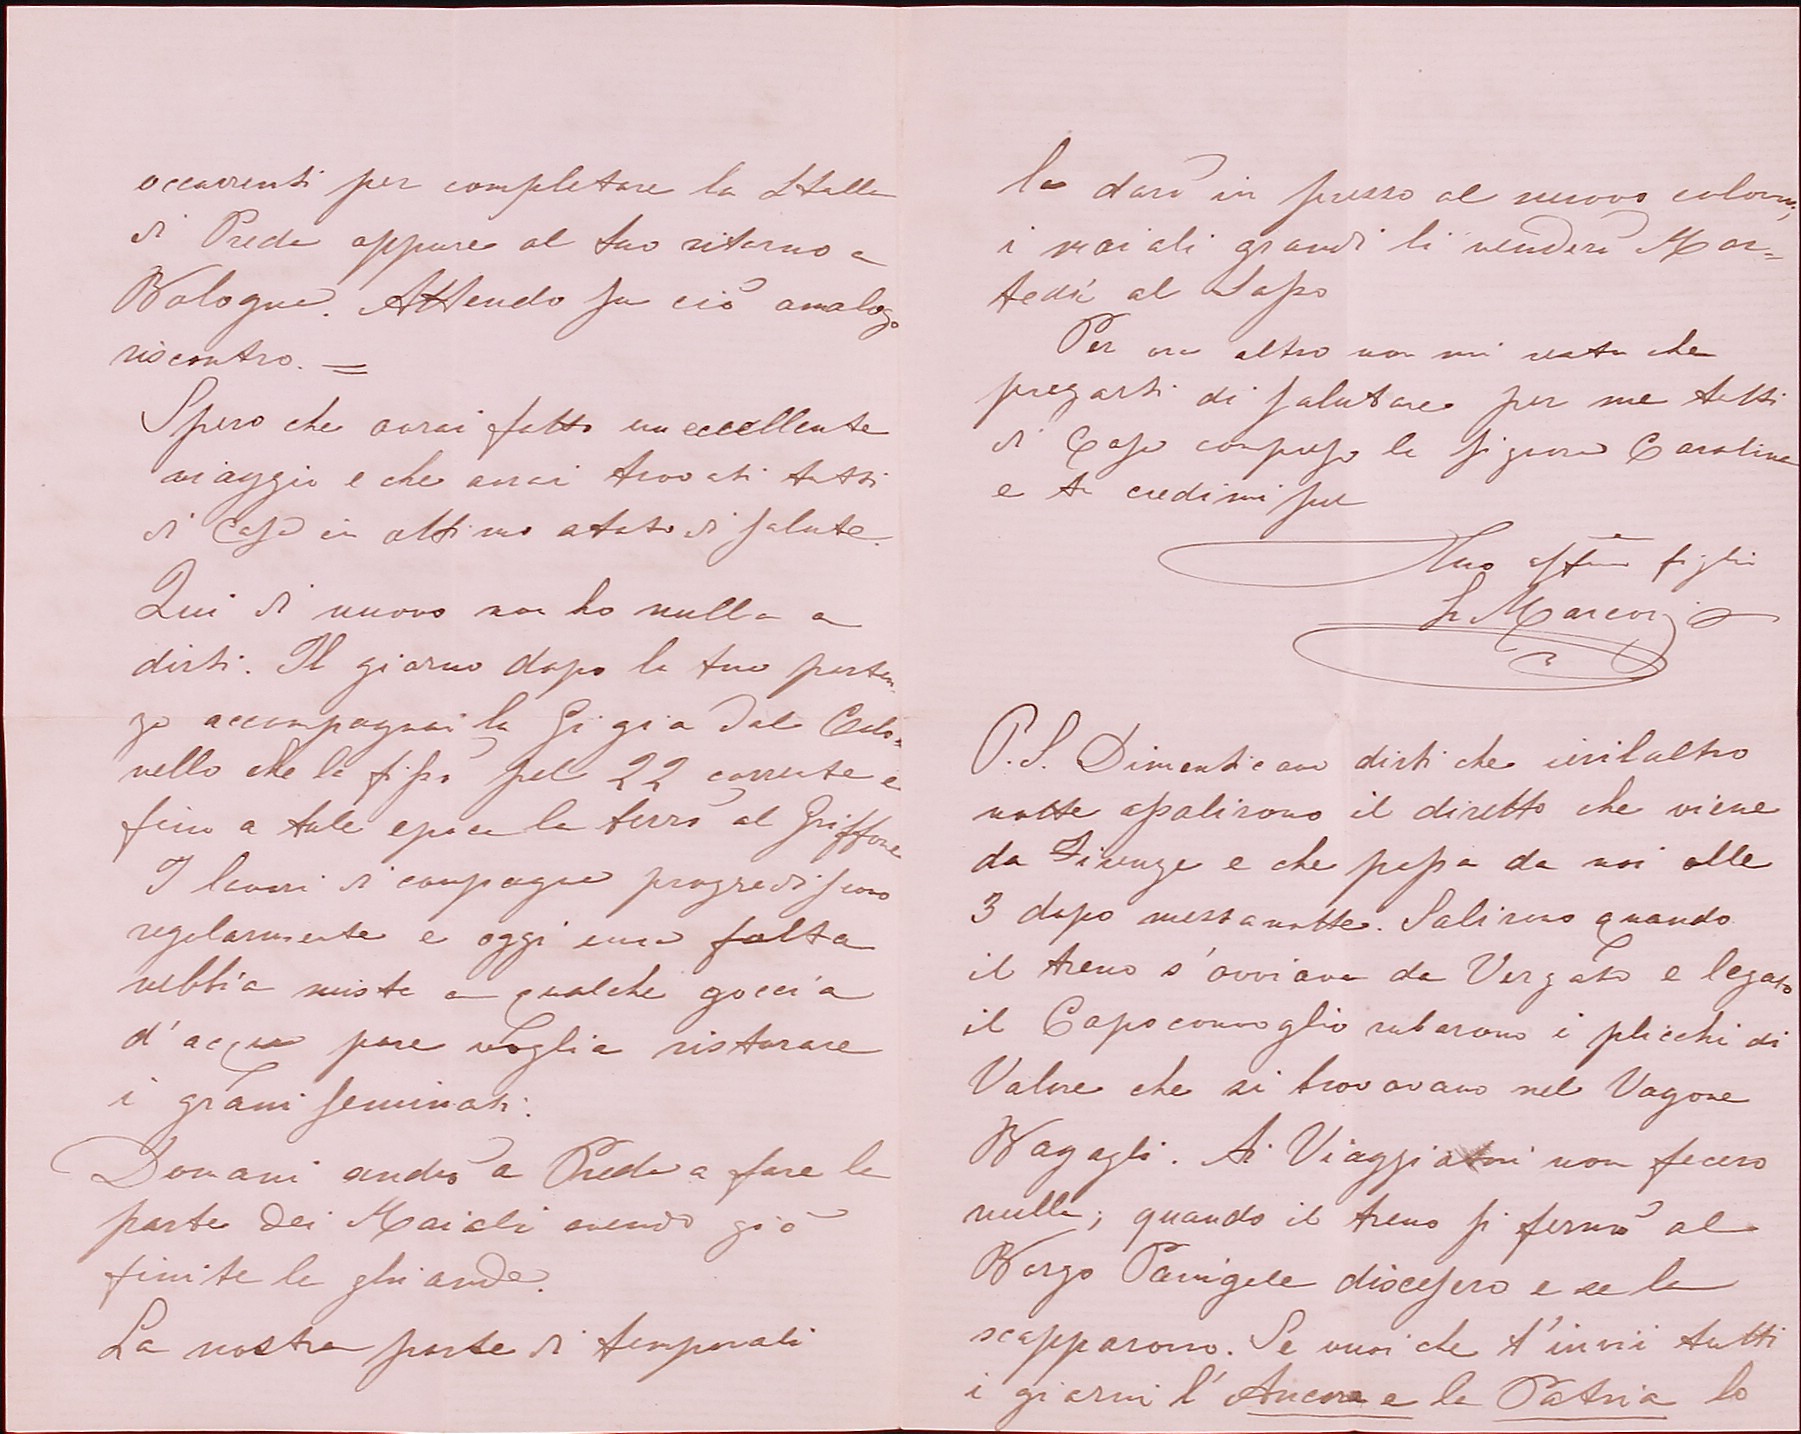 occorrenti per completare la Stalla
di Preda oppure al tuo ritorno a
Bologna. Attendo su ciò analogo
riscontro. =
Spero che avrai fatto un eccellente
viaggio e che avrai trovati tutti
di Casa in ottimo stato di salute.
Qui di nuovo non ho nulla a
dirti. Il giorno dopo la tua parten-
za accompagnai la Gigia dal Colo-
nello che la fissò pel 22 corrente e
fino a tale epoca la terrò al Griffone
I lavori di campagna progrediscono
regolarmente e oggi una folta
nebbia mista a qualche goccia
d'acqua pare voglia ristorare
i grani seminati.
Domani andrò a Preda a fare la
parte dei Maiali avendo già
finite le ghiande.
La nostra parte di temporali
la darò in prezzo al nuovo colono,
i maiali grandi li venderò Mar=
tedì al Sasso
Per ora altro non mi resta che
pregarti di salutare per me tutti
di Casa compresa la signora Carolina
e tu credimi pur
Tuo affmo figlio
L Marconi
P.S. Dimenticavo dirti che ierilaltro
notte assalirono il diretto che viene
da Firenze e che passa da noi alle
3 dopo mezzanotte. Salirono quando
il treno s'avviava da Vergato e legato
il Capoconvoglio rubarono i plicchi di
Valore che si trovavano nel Vagone
Bagagli. Ai Viaggiatori non fecero
nulla; quando il treno si fermò al
Borgo Panigale discesero e se la
scapparono. Se vuoi che t'invii tutti
i giorni l'Ancora e la Patria lo